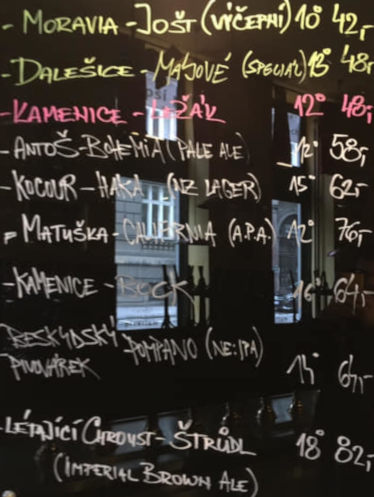 - MORAVIA - JOŠT (VÝČEPNÍ) 10° 42,-
- DALEŠICE - MÁJOVÉ (SPECIÁL) 13° 48,-
- KAMENICE - LEŽÁK 12° 48,-
- ANTOŠ - BOHEMIA (PALE ALE) 12° 58,-
- KOCOUR - HAKA (NZ LAGER) 15° 62,-
- MATUŠKA - CALIFORNIA (A.P.A.) 12° 76,-
- KAMENICE - BOCK 16° 64,-
BESKYDSKÝ PIVOVÁREK - POMPANO (NE:IPA) 64,-
- LÉTAJÍCÍ CHROUST - ŠTRŮDL 18° 82,-
(IMPERIAL BROWN ALE)